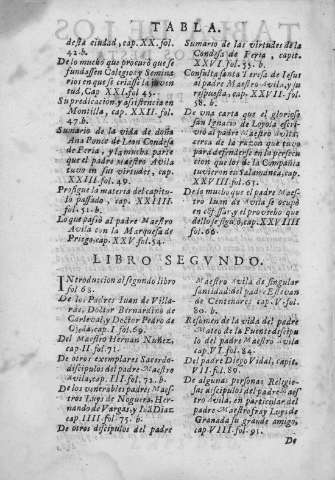 TABLA.
desta ciudad, cap. XX. fol.
42. b.
De lo mucho que procurò que se
fundassen Colegios y Semina
rios en que se criasse la iuven
tud, Cap XXI fol. 45.
Su predicacion y assistencia en
Montilla, cap. XXII. fol.
47. b.
Sumario de la vida de doña
Ana Ponce de Leon Condesa
de Feria, y la mucha parte
que el padre Maestro Avila
tuvo en sus virtudes, cap.
XXIII. fol. 49.
Prosigue la materia del capitu-
lo passado, cap. XXIIII.
fol. 51. b.
Lo que passò al padre Maestro
Avila con la Marquesa de
Priego, cap. XXV fol. 54.
Sumario de las virtudes de la
Condesa de Feria, capit.
XXVI fol. 55. b.
Consulta santa Teresa de Iesus
al padre Maestro Avila, y su
respuesta, cap. XXVII. fol.
58. b.
De una carta que el glorioso
san Ignacio de Loyola escri-
viò al padre Maestro Avila,
cerca de la razon que tuvo
para defenderse en la persecu
cion que los de la Compañia
tuvieron en Salamanca, cap.
XXVIII fol. 63.
De lo mucho que el padre Maes-
tro Iuan de Avila se ocupò
en escrivir, y el provecho que
dello se siguiò, cap. XXVIIII
fol. 66.
LIBRO SEGVNDO.
INtroduccion al segundo libro
fol 68.
De los Padres Iuan de Villa-
ràs, Doctor Bernardino de
Carleval, y Doctor Pedro de
Ojeda, cap. I fol. 69.
Del Maestro Hernan Nuñez,
cap. II fol. 71.
De otros exemplares Sacerdo-
tes dicipulos del padre Maestro
Avila, cap. III fol. 72. b.
De los venerables padres Maes-
tros Luys de Noguera, Her-
nando de Vargas, y Iuã Diaz
cap. IIII fol. 75. b.
De otros dicipulos del padre
Maestro Avila de singular
santidad: del padre Estevan
de Centenares cap. V. fol.
80. b.
Resumen de la vida del padre
Mateo de la Fuente discipu
lo del padre Maestro Avila
cap. VI. fol. 84.
Del padre Diego Vidal, capit.
VII fol. 89.
De algunas personas Religio-
sas dicipulos del padre Maes-
tro Avila, en particular del
padre Maestro fray Luys de
Granada su grande amigo,
cap VIII fol. 91.
De